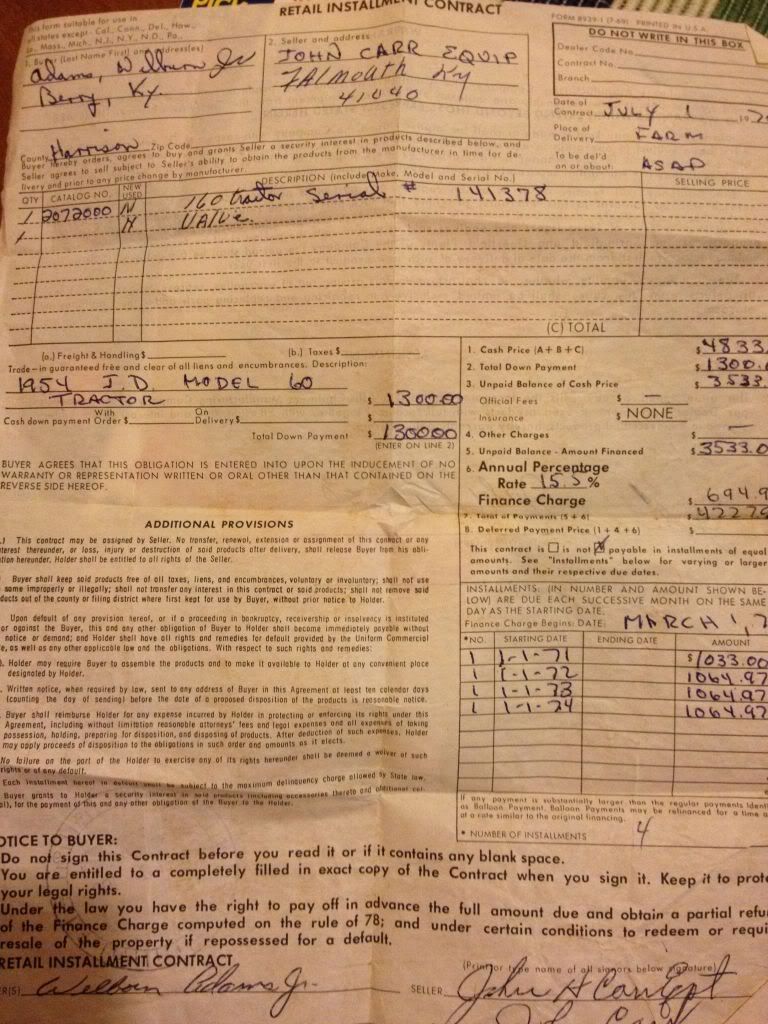 RETAIL INSTALLMENT CONTRACT
This form suitable for use in
all states except - Cal., Conn., Del., Haw.,
Ia., Mass., Mich., N.J., N.Y., N.D., Pa.,
FORM 8939-1 (7-69) PRINTED IN U.S.A.
DO NOT WRITE IN THIS BOX
Dealer Code No.
Contract No.
Branch
1. Buyer (Last Name First) and address(es)
Adams, Welburn Jr
Berry, Ky.
2. Seller and address
JOHN CARR EQUIP
FALMOUTH Ky
41040
Date of Contract JULY 1 19
Place of Delivery FARM
To be del'd on or about: ASAP
County Harrison Zip Code
Buyer hereby orders, agrees to buy and grants Seller a security interest in products described below, and
Seller agrees to sell subject to Seller's ability to obtain the products from the manufacturer in time for de-
livery and prior to any price change by manufacturer
QTY CATALOG NO. NEW USED DESCRIPTION (include Make, Model and Serial No.) SELLING PRICE
1 2072000 N 160 tractor Serial # 141378
1 N VALVE
(C) TOTAL
(a.) Freight & Handling $ (b.) Taxes $
Trade-in guaranteed free and clear of all liens and encumbrances. Description:
1954 J.D. MODEL 60
TRACTOR $ 1300.00
Cash down payment With Order $ On Delivery $ $
Total Down Payment $ 1300.00
(ENTER ON LINE 2)
BUYER AGREES THAT THIS OBLIGATION IS ENTERED INTO UPON THE INDUCEMENT OF NO
WARRANTY OR REPRESENTATION WRITTEN OR ORAL OTHER THAN THAT CONTAINED ON THE
REVERSE SIDE HEREOF.
1. Cash Price (A + B + C) $ 4833.
2. Total Down Payment $ 1300.
3. Unpaid Balance of Cash Price $ 3533.
Official Fees $ —
Insurance $ NONE
4. Other Charges $ —
5. Unpaid Balance - Amount Financed $ 3533.0
6. Annual Percentage
Rate 15.5 %
Finance Charge $ 694.9
7. Total of Payments (5 + 6) $ 4227.9
8. Deferred Payment Price (1 + 4 + 6) $
This contract is ☐ is not ☒ payable in installments of equal
amounts. See "Installments" below for varying or larger
amounts and their respective due dates.
INSTALLMENTS: (IN NUMBER AND AMOUNT SHOWN BE-
LOW) ARE DUE EACH SUCCESSIVE MONTH ON THE SAME
DAY AS THE STARTING DATE.
Finance Charge Begins: DATE: MARCH 1, 7
*NO. STARTING DATE ENDING DATE AMOUNT
1 1-1-71 $1033.00
1 1-1-72 1064.97
1 1-1-73 1064.97
1 1-1-74 1064.97
If any payment is substantially larger than the regular payments identi
as Balloon Payment. Balloon Payments may be refinanced for a time a
at a rate similar to the original financing.
* NUMBER OF INSTALLMENTS 4
ADDITIONAL PROVISIONS
This contract may be assigned by Seller. No transfer, renewal, extension or assignment of this contract or any
interest thereunder, or loss, injury or destruction of said products after delivery, shall release Buyer from his obli-
tion hereunder. Holder shall be entitled to all rights of the Seller.
Buyer shall keep said products free of all taxes, liens, and encumbrances, voluntary or involuntary; shall not use
same improperly or illegally; shall not transfer any interest in this contract or said products; shall not remove said
ducts out of the county or filing district where first kept for use by Buyer, without prior notice to Holder.
Upon default of any provision hereof, or if a proceeding in bankruptcy, receivership or insolvency is instituted
or against the Buyer, this and any other obligation of Buyer to Holder shall become immediately payable without
notice or demand; and Holder shall have all rights and remedies for default provided by the Uniform Commercial
e, as well as any other applicable law and the obligations. With respect to such rights and remedies:
Holder may require Buyer to assemble the products and to make it available to Holder at any convenient place
designated by Holder.
Written notice, when required by law, sent to any address of Buyer in this Agreement at least ten calendar days
(counting the day of sending) before the date of a proposed disposition of the products is reasonable notice.
Buyer shall reimburse Holder for any expense incurred by Holder in protecting or enforcing its rights under this
Agreement, including without limitation reasonable attorneys' fees and legal expenses and all expenses of taking
possession, holding, preparing for disposition, and disposing of products. After deduction of such expenses, Holder
may apply proceeds of disposition to the obligations in such order and amounts as it elects.
No failure on the part of the Holder to exercise any of its rights hereunder shall be deemed a waiver of such
rights or of any default.
Each installment hereof in default shall be subject to the maximum delinquency charge allowed by State law.
Buyer grants to Holder a security interest in said products (including accessories thereto and additional col-
al), for the payment of this and any other obligation of the Buyer to the Holder.
OTICE TO BUYER:
Do not sign this Contract before you read it or if it contains any blank space.
You are entitled to a completely filled in exact copy of the Contract when you sign it. Keep it to prote
your legal rights.
Under the law you have the right to pay off in advance the full amount due and obtain a partial refu
of the Finance Charge computed on the rule of 78; and under certain conditions to redeem or requi
resale of the property if repossessed for a default.
RETAIL INSTALLMENT CONTRACT
(Print or type name of all signors below signature)
ER(S) Welburn Adams Jr.
SELLER John H Carr Eqpt